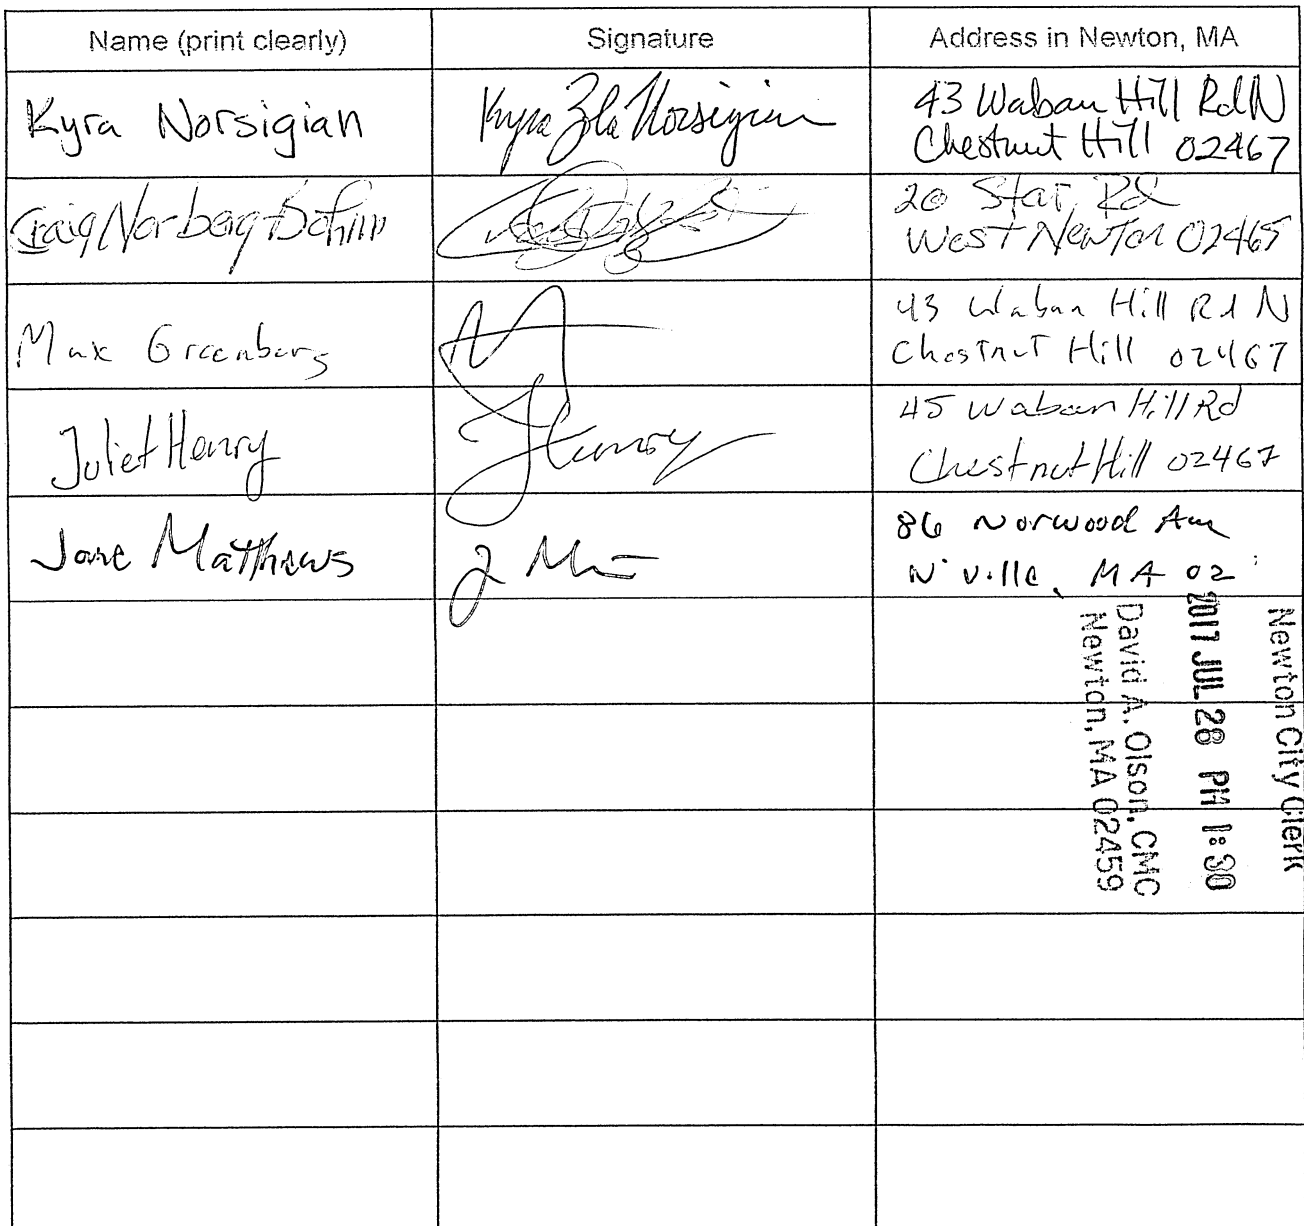 Name (print clearly) Signature Address in Newton, MA
Kyra Norsigian Kyra Zola Norsigian 43 Waban Hill Rd N
Chestnut Hill 02467
Craig Norberg-Bohm 20 Star Rd
West Newton 02465
Max Greenberg 43 Waban Hill Rd N
Chestnut Hill 02467
Juliet Henry JHenry 45 Waban Hill Rd
Chestnut Hill 02467
Jane Matthews J M 86 Norwood Ave
N'ville, MA 02
Newton City Clerk
2017 JUL 28 PM 1:30
David A. Olson, CMC
Newton, MA 02459